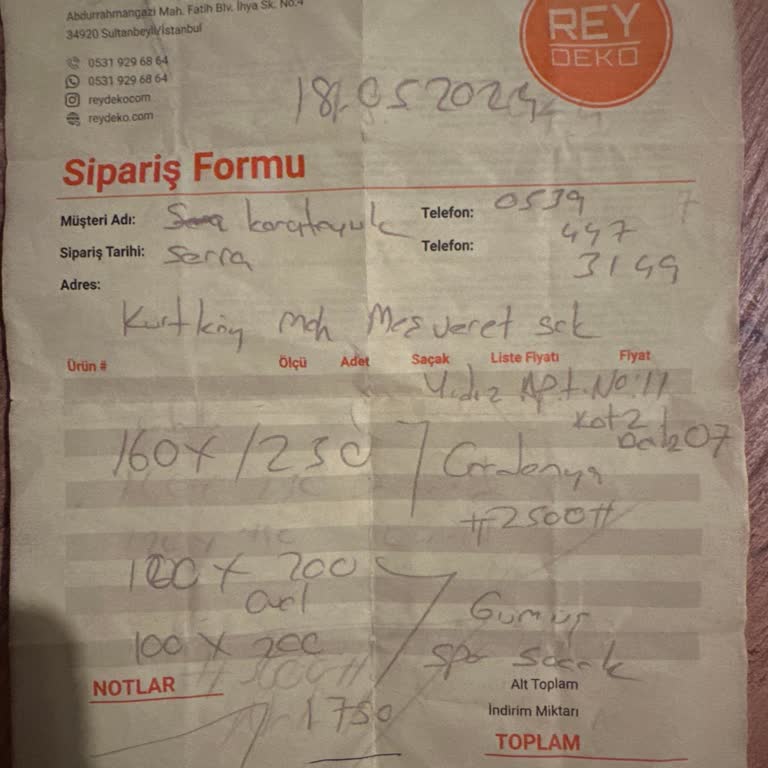 Abdurrahmangazi Mah. Fatih Blv. İhya Sk. No:4
34920 Sultanbeyli/İstanbul
0531 929 68 64
0531 929 68 64
reydekocom
reydeko.com
REY
DEKO
18.05.2024
Sipariş Formu
Müşteri Adı:
Telefon: 0539
447
3149
Sipariş Tarihi: Serra
Telefon:
Adres:
Kurtköy Mah Meşveret sok
Ürün # Ölçü Adet Saçak Liste Fiyatı Fiyat
Yıldız Apt. No:11
Kat 2
07
160x/230
#2500#
200
Gümüş
100 x 200
Saçak
NOTLAR
Alt Toplam
1750
İndirim Miktarı
TOPLAM